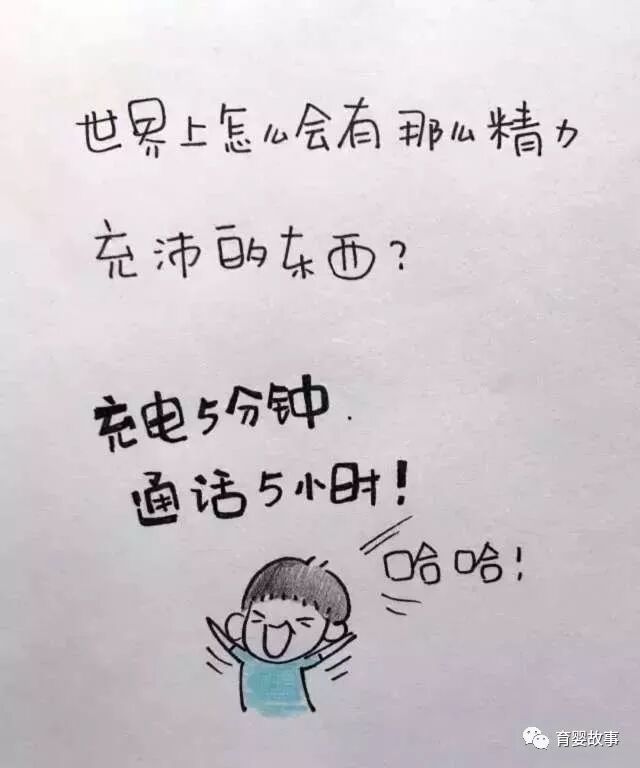 世界上怎么会有那么精力
充沛的东西?
充电5分钟.
通话5小时!
哈哈!
育婴故事